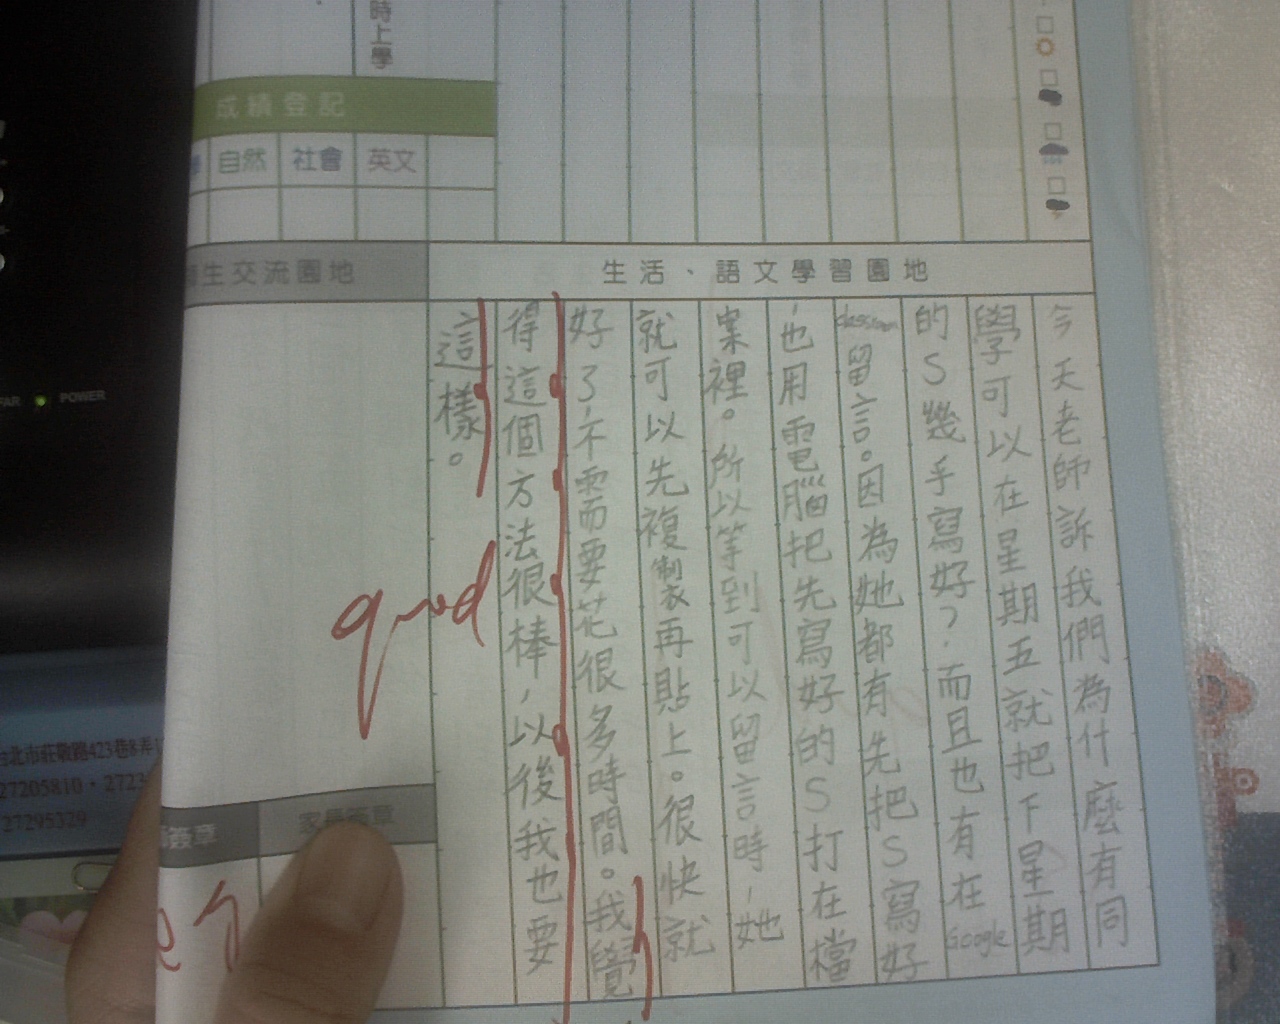 時上學
成績登記
自然
社會
英文
生交流園地
生活、語文學習園地
今天老師訴我們為什麼有同
學可以在星期五就把下星期
的S幾乎寫好?而且也有在Google
classroom留言。因為她都有先把S寫好
,也用電腦把先寫好的S打在檔
案裡。所以等到可以留言時,她
就可以先複製再貼上。很快就
好了,不需要花很多時間。我覺
得這個方法很棒,以後我也要
這樣。
good
簽章
家長簽章
POWER
台北市莊敬路423巷8弄1
27205810・2723
27295329